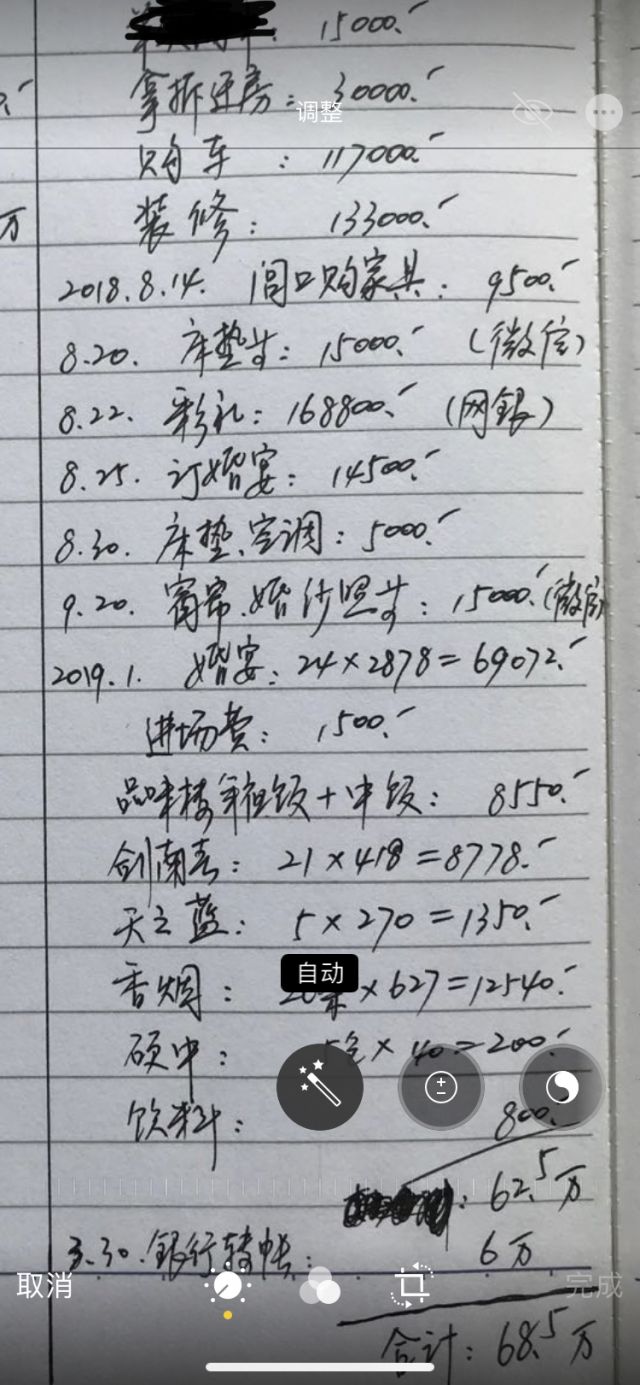 15000.-
拿拆迁房: 30000.-
调整
购车: 117000.-
万
装修: 133000.-
2018.8.14. 闾口购家具: 9500.-
8.20. 床垫等: 15000.- (微信)
8.22. 彩礼: 168800.- (网银)
8.25. 订婚宴: 14500.-
8.30. 床垫、空调: 5000.-
9.20. 窗帘、婚纱照等: 15000.- (微信)
2019.1. 婚宴: 24×2878=69072.-
进场费: 1500.-
品味楼 饭+中饭: 8550.-
剑南春: 21×418=8778.-
天之蓝: 5×270=1350.-
自动
香烟: 20条×627=12540.-
硕中: 5包×40=200.-
饮料: 800.-
: 62.5万
3.30. 银行转帐: 6万
取消
完成
合计: 68.5万